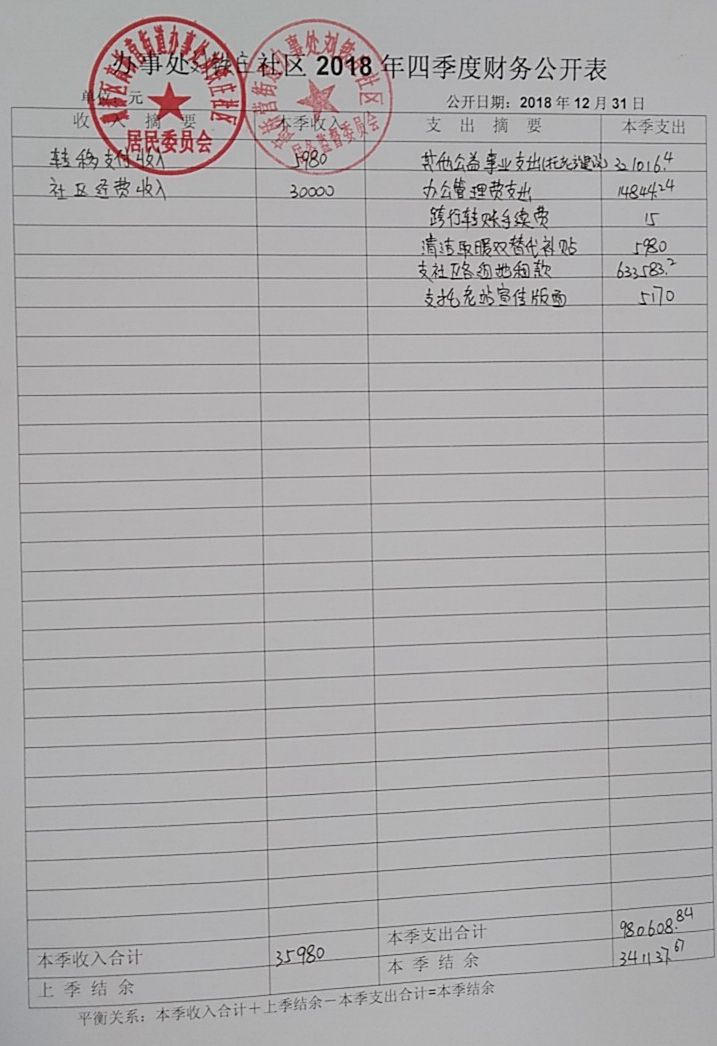 办事处 庄社区 2018 年四季度财务公开表
单位 元 公开日期：2018 年 12 月 31 日
收 入 摘 要 本季收入 支 出 摘 要 本季支出
转移支付收入 5980 其他公益事业支出(托老站建设) 321016.4
社区经费收入 30000 办公管理费支出 14844.24
跨行转账手续费 15
清洁取暖双替代补贴 5980
支社区各组地租款 633583.2
支托老站宣传版面 5170
本季支出合计 980608.84
本季收入合计 35980 本 季 结 余 341137.67
上 季 结 余
平衡关系：本季收入合计＋上季结余－本季支出合计=本季结余
街道办事处 庄社区
居民委员会
居务监督委员会